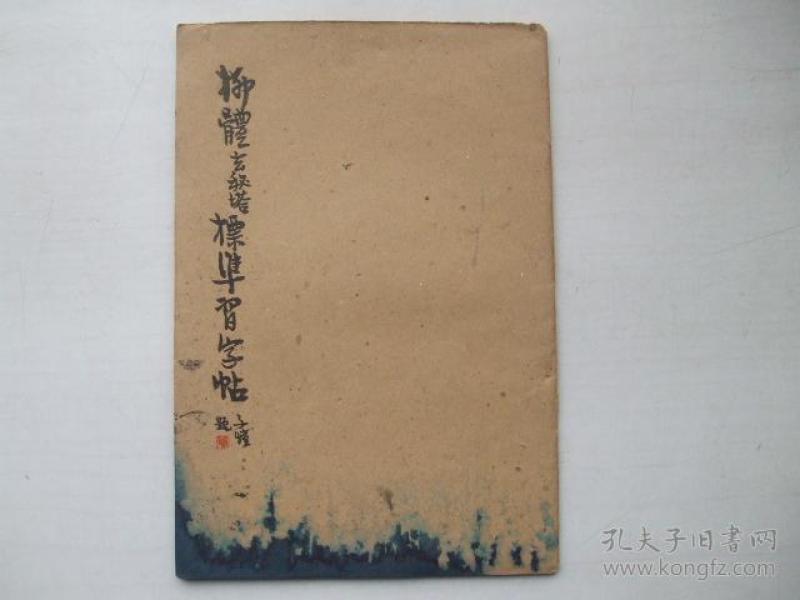 柳體玄秘塔標準習字帖
子愷
題
孔夫子旧書网
www.kongfz.com